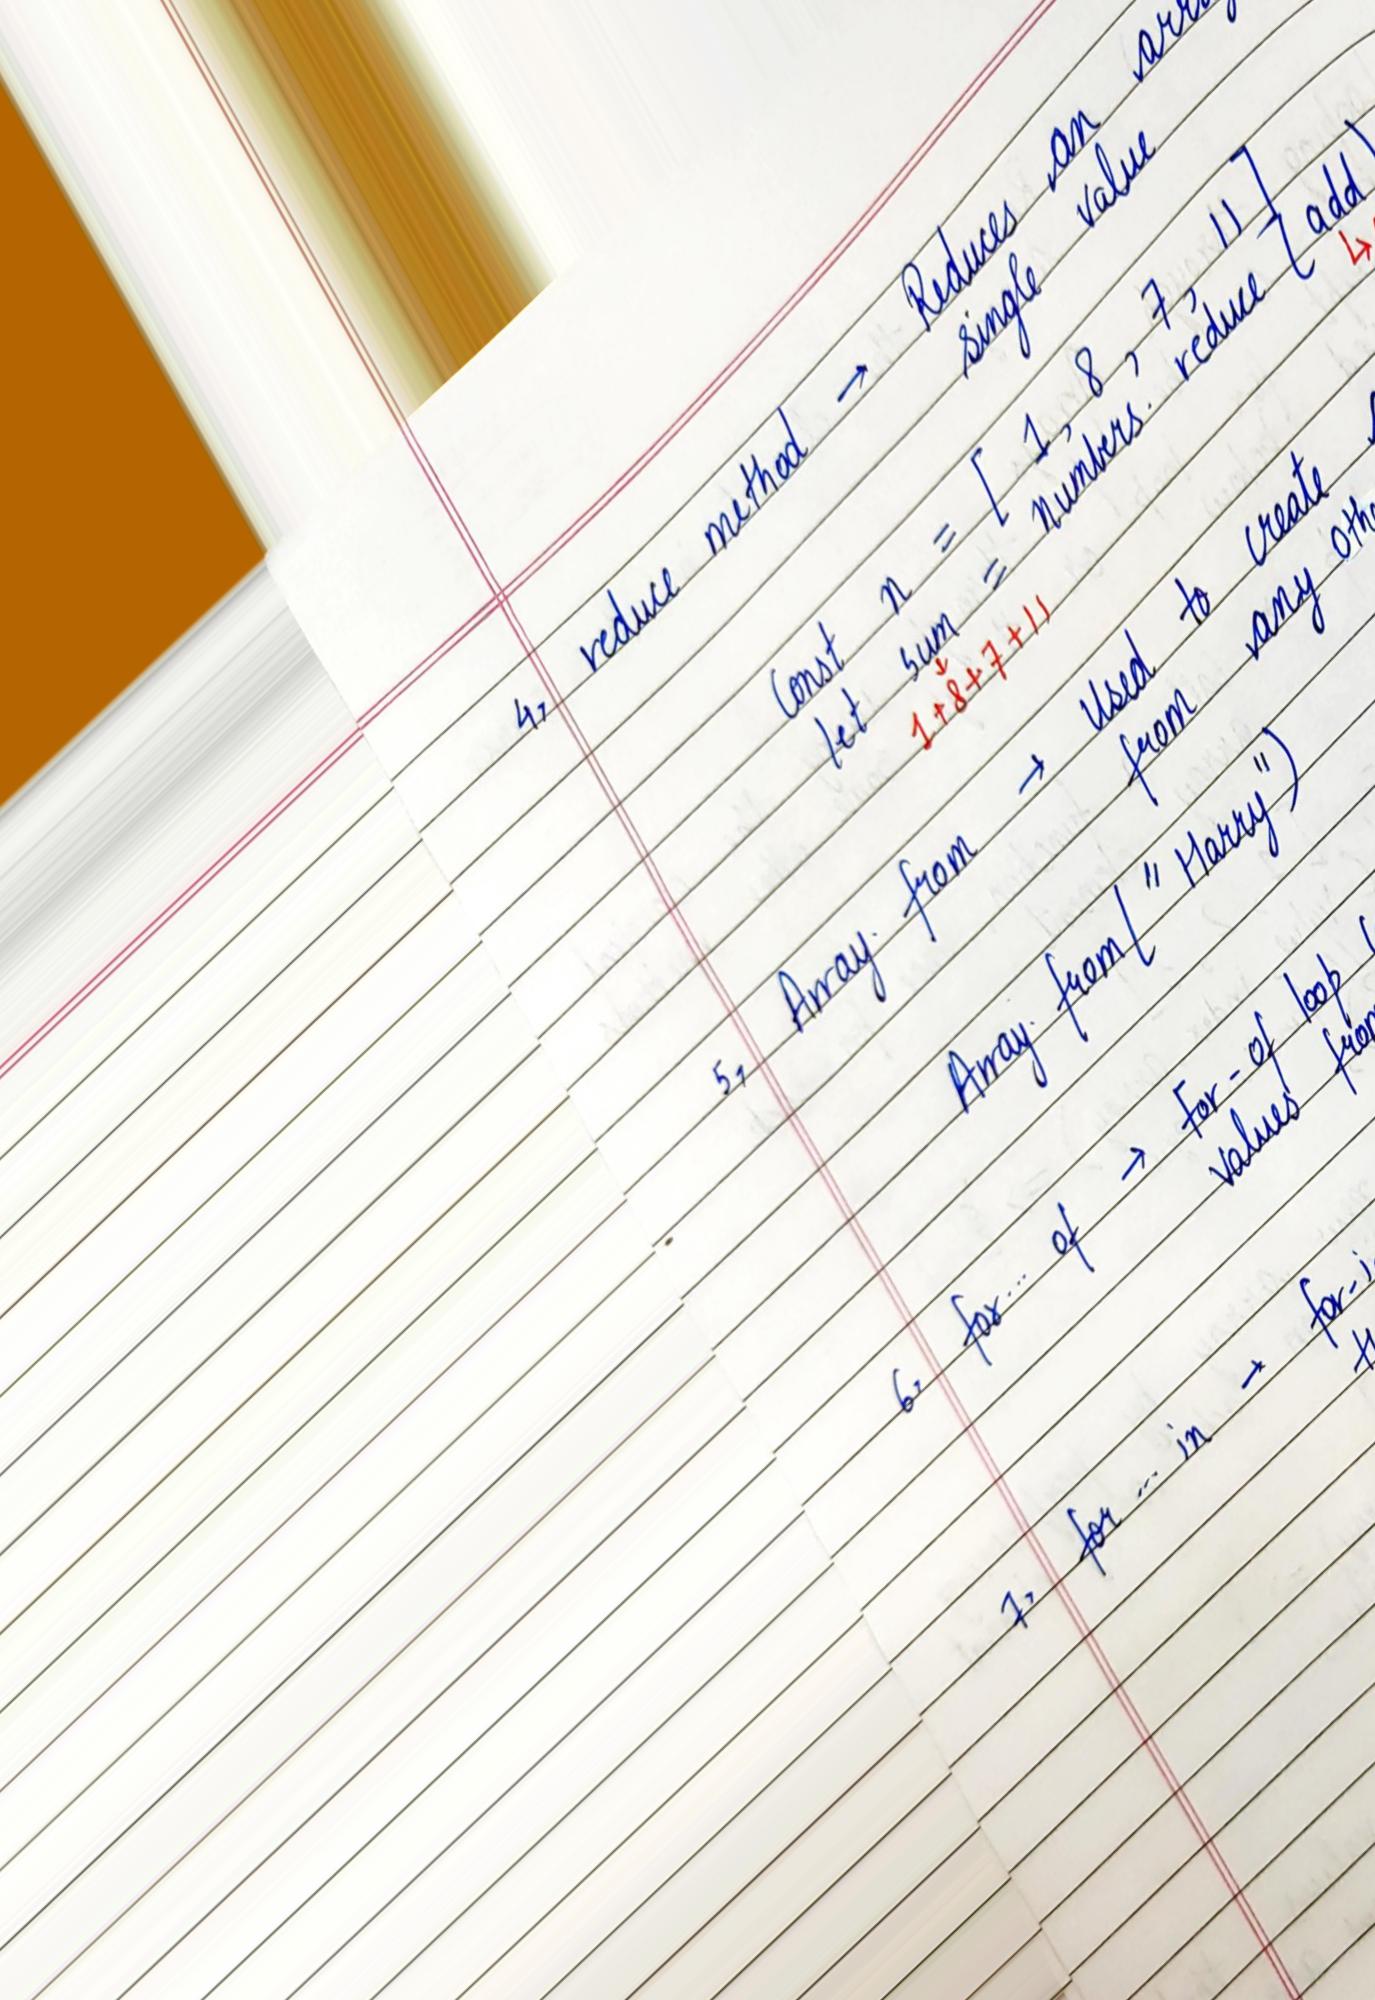 4, reduce method → Reduces an
single value
Const n = [ 1, 8, 7, 11 ]
let sum = numbers. reduce ( add )
1+8+7+11
5, Array. from → Used to create
from any
Array. from ( "Harry")
6, for... of → For-of loop
values
7, for ... in →